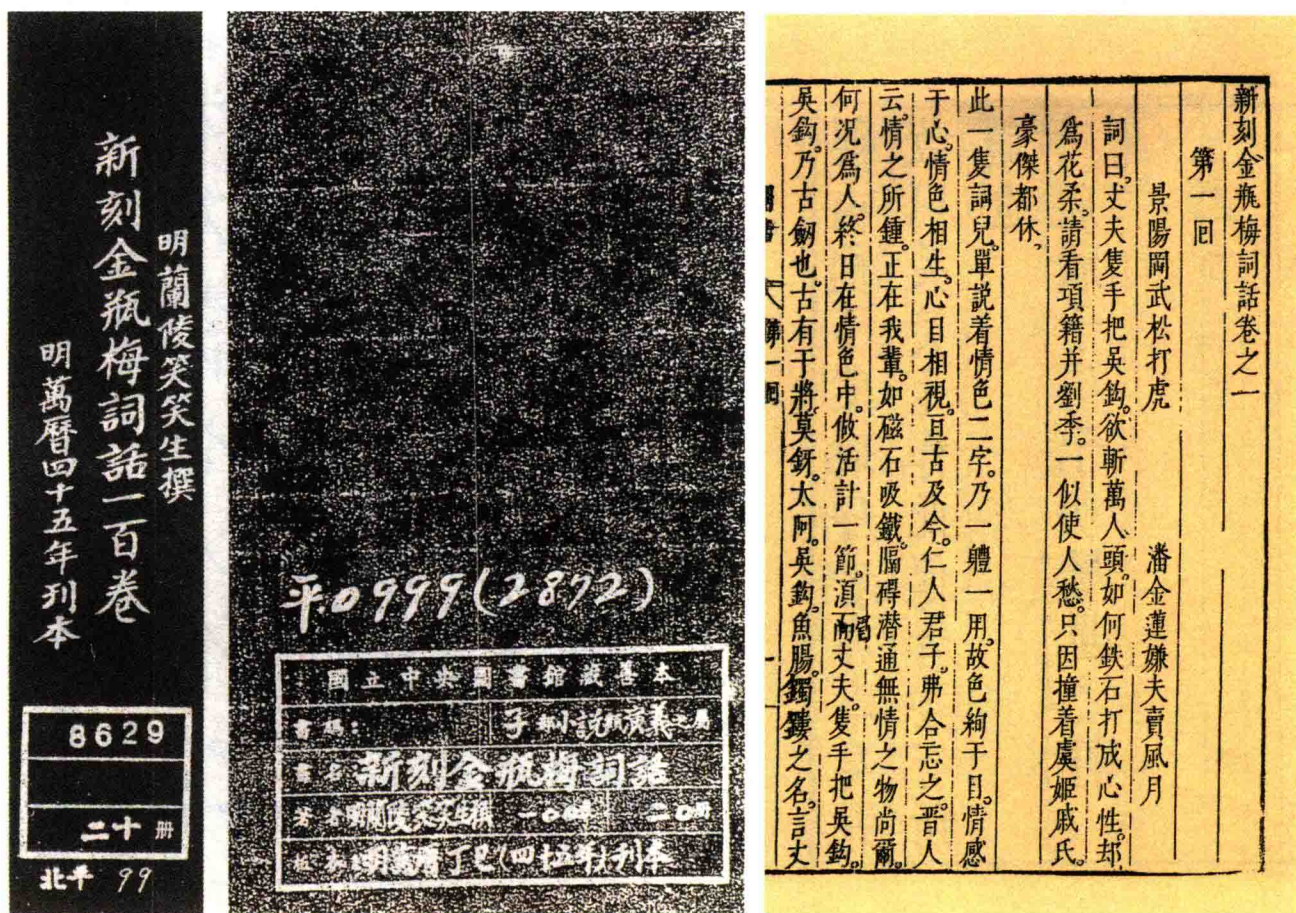 明蘭陵笑笑生撰
新刻金瓶梅詞話一百卷
明萬曆四十五年刊本
8629
二十 冊
北平 99
平0999(2872)
國立中央圖書館藏善本
書碼: 子部小說類演義之屬
書名 新刻金瓶梅詞話
著者 明蘭陵笑笑生撰 一〇〇 二〇冊
本 明萬曆丁巳(四十五年)刊本
新刻金瓶梅詞話卷之一
第一回
景陽岡武松打虎 潘金蓮嫌夫賣風月
詞曰。丈夫隻手把吳鈎。欲斬萬人頭。如何鉄石打成心性。却
爲花柔。請看項籍并劉季。一似使人愁。只因撞着虞姬戚氏。
豪傑都休。
此一隻詞兒。單説着情色二字。乃一軆一用。故色絢于目。情感
于心。情色相生。心目相視。亘古及今。仁人君子。弗合忘之。晋人
云。情之所鍾。正在我輩。如磁石吸鐵。隔碍潛通。無情之物尚爾。
何况爲人。終日在情色中。做活計一節。須而丈夫。隻手把吳鈎。
吳鈎。乃古劒也。古有干將。莫釾。太阿。吳鈎。魚腸。鐲鏤之名。言丈
第一回